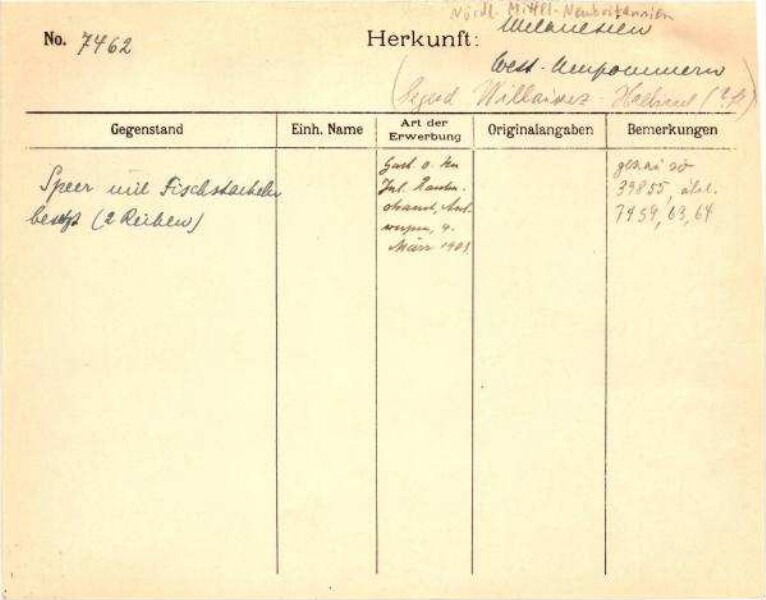 Nördl. Mittel-Neubritannien
No. 7462 Herkunft: Melanesien
West-Neupommern
(Gegend Willaumez-Halbinsel (?))
Gegenstand Einh. Name Art der Erwerbung Originalangaben Bemerkungen
Speer mit Fischstacheln
besetzt (2 Reihen)
März 1901
genau so
39855, ähnl.
7459, 63, 64